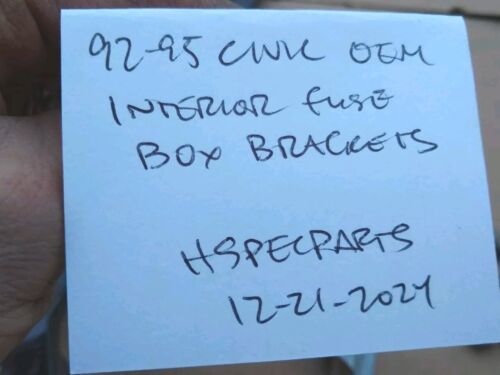 92-95 CIVIC OEM
INTERIOR fuSE
BOX BRACKETS
HSPECPARTS
12-21-2024